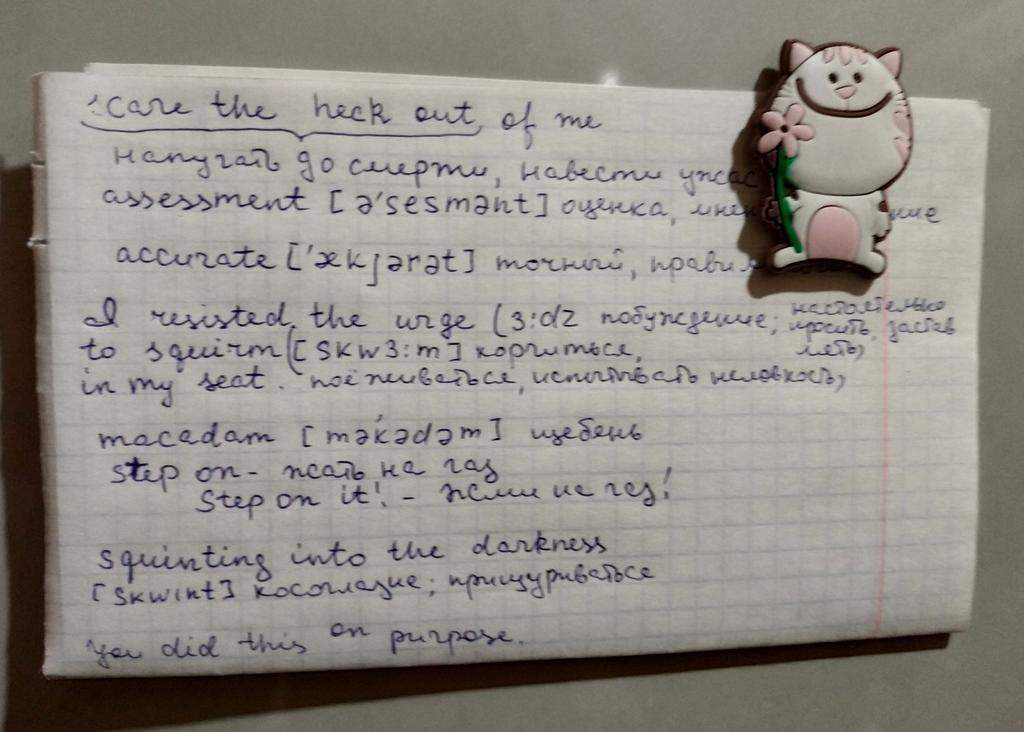 scare the heck out of me
напугать до смерти, навести ужас
assessment [ə'sesmənt] оценка,
accurate ['ækjərət] точный,
I resisted the urge (ɜ:dʒ побуждение; настоятельно
to squirm [skwɜ:m] корчиться, просить, застав
in my seat. поёживаться, испытывать неловкость, лять)
macadam [mək'ədəm] щебень
step on - жать на газ
Step on it! - жми на газ!
squinting into the darkness
[skwint] косоглазие; прищуриваться
you did this on purpose.